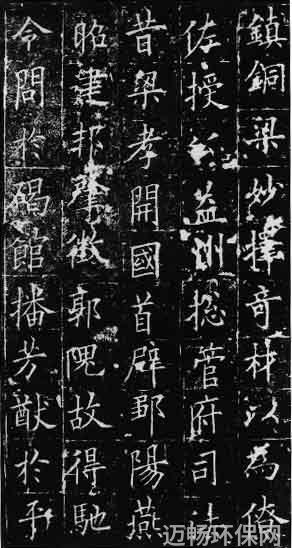 鎮銅梁妙擇奇材以為僚
佐授益州捴管府司
昔梁孝開國首辟鄒陽燕
昭建邦肇徵郭隗故得馳
令問於碣館播芳猷於平
迈畅环保网